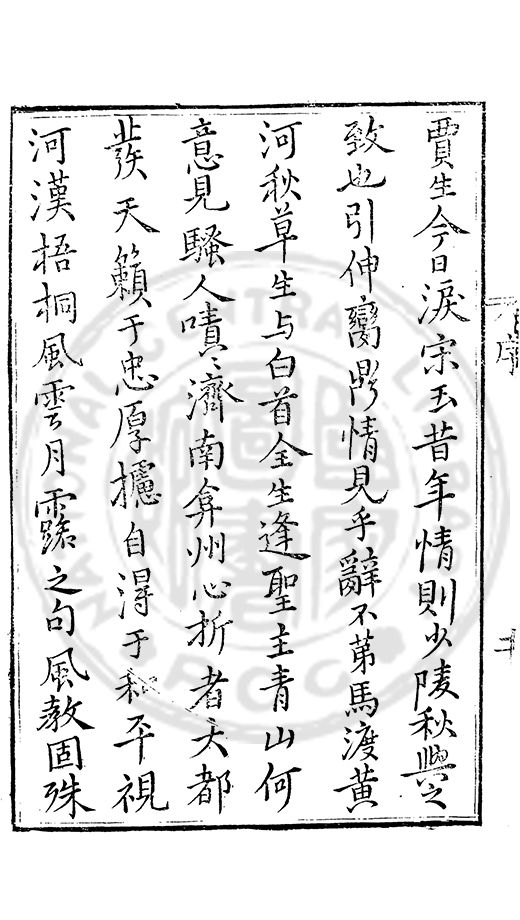 賈生今日淚宋玉昔年情則少陵秋興之
致也引伸臠鼎情見乎辭不第馬渡黃
河秋草生与白首全生逢聖主青山何
意見騷人嘖〻濟南弇州心折者大都
發天籟于忠厚攄自得于和平視
河漢梧桐風雲月露之句風教固殊
序